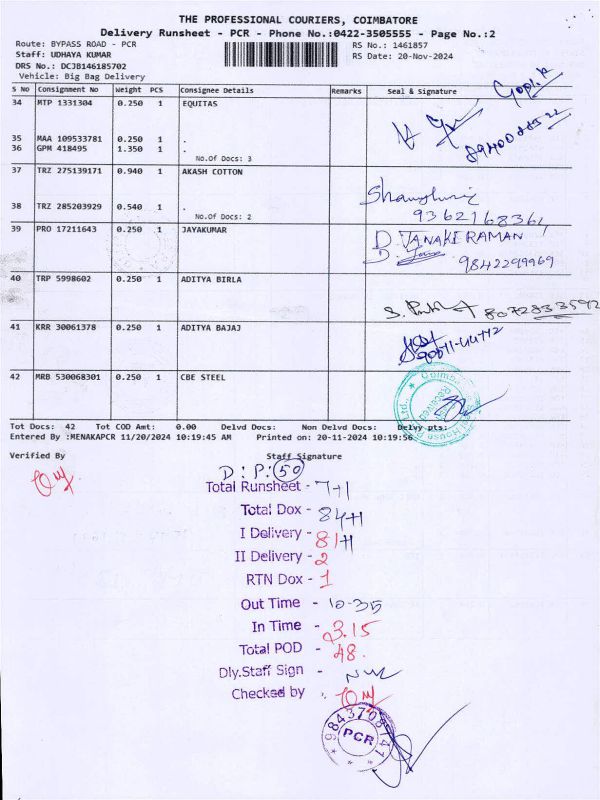 THE PROFESSIONAL COURIERS, COIMBATORE
Delivery Runsheet - PCR - Phone No.:0422-3505555 - Page No.:2
Route: BYPASS ROAD - PCR
RS No.: 1461857
Staff: UDHAYA KUMAR
RS Date: 20-Nov-2024
DRS No.: DCJB146185702
Vehicle: Big Bag Delivery
S No Consignment No Weight PCS Consignee Details Remarks Seal & Signature
34 MTP 1331304 0.250 1 EQUITAS
35 MAA 109533781 0.250 1 .
36 GPM 418495 1.350 1 .
No.Of Docs: 3
37 TRZ 275139171 0.940 1 AKASH COTTON
38 TRZ 285203929 0.540 1 .
9362168364
No.Of Docs: 2
39 PRO 17211643 0.250 1 JAYAKUMAR
D. JANAKI RAMAN
9842299969
40 TRP 5998602 0.250 1 ADITYA BIRLA
8072833592
41 KRR 30061378 0.250 1 ADITYA BAJAJ
42 MRB 530068301 0.250 1 CBE STEEL
Tot Docs: 42 Tot COD Amt: 0.00 Delvd Docs: Non Delvd Docs: Delvy pts:
Entered By :MENAKAPCR 11/20/2024 10:19:45 AM Printed on: 20-11-2024 10:19:56
Verified By Staff Signature
D : P : 50
Total Runsheet - 7+1
Total Dox - 84+1
I Delivery - 81+1
II Delivery - 2
RTN Dox - 1
Out Time - 10-35
In Time - 3.15
Total POD - 48.
Dly.Staff Sign -
Checked by -
9843708147
PCR